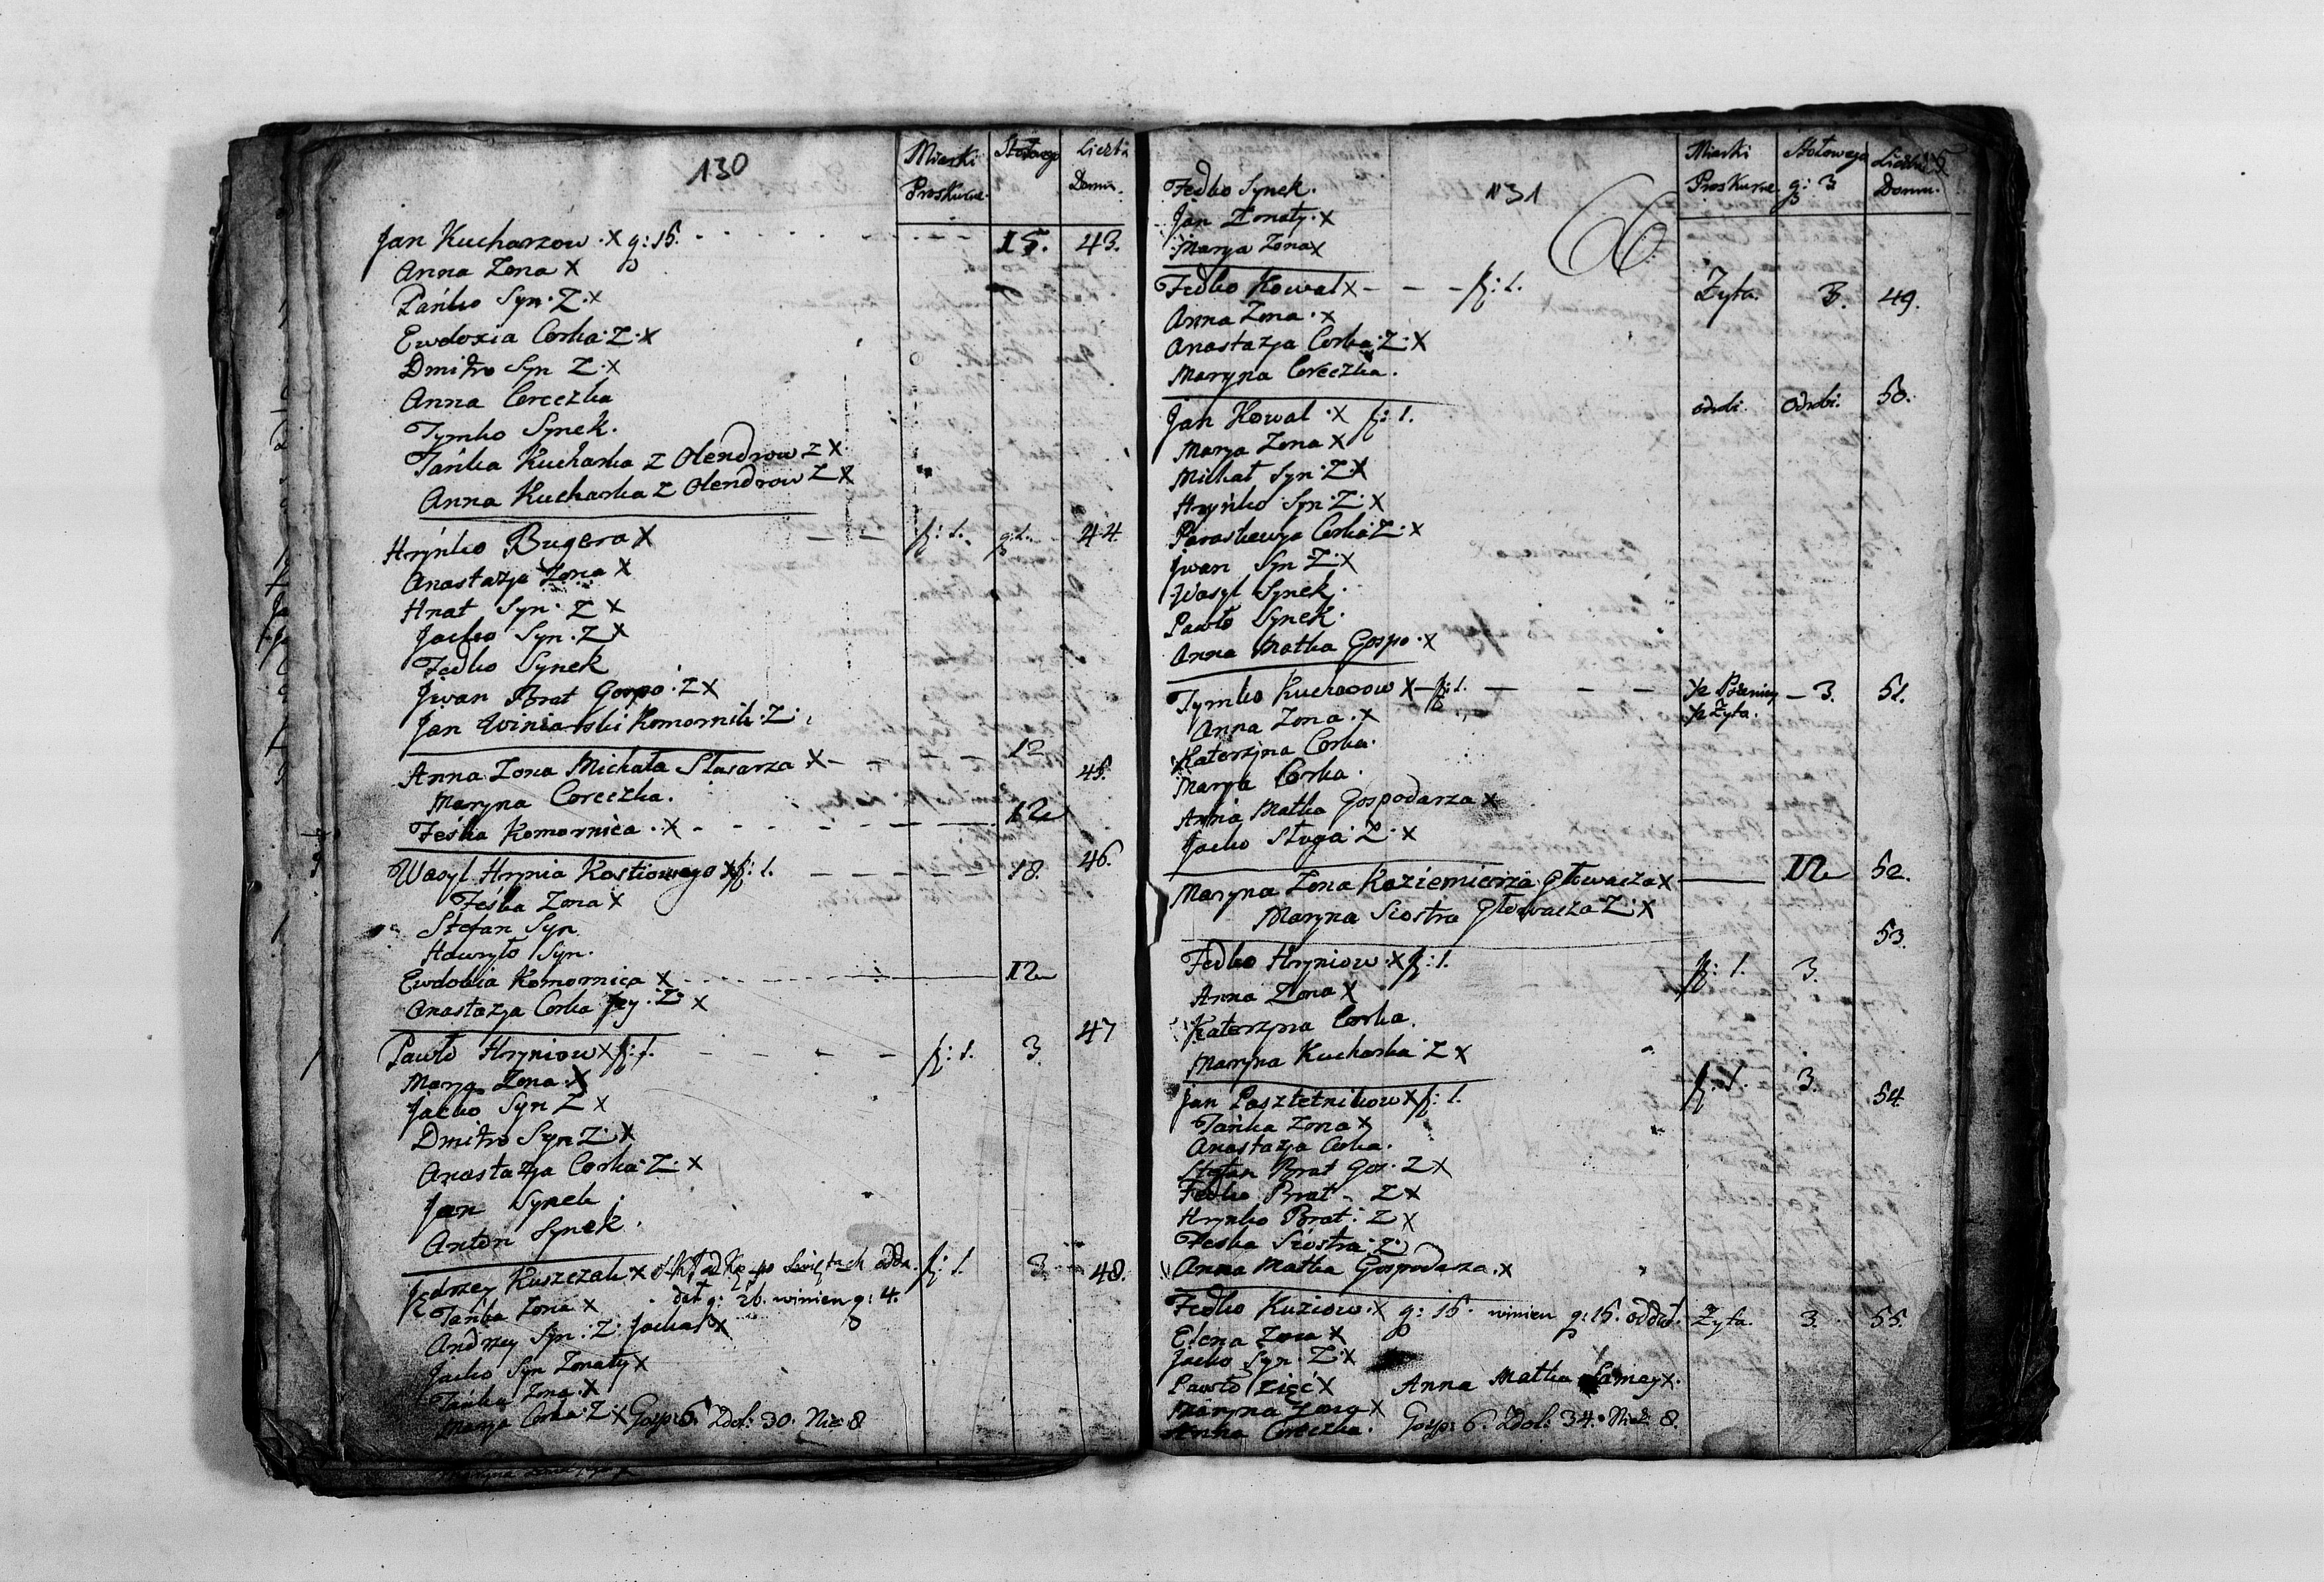 130
Miarki Proskurne. Stołowego Liczba Domu.
Jan Kucharzow . X g: 15. 15. 43.
Anna Zona X
Pańko Syn . Z . X
Ewdoxia Corka . Z . X
Dmitro Syn Z . X
Anna Coreczka
Tymko Synek .
Tańka Kucharka Z Olendrow Z X
Anna Kucharka Z Olendrow Z X
Hryńko Bugera X f: 1. g: 1. 44.
Anastazja Zona X
Hnat Syn . Z X
Jacko Syn . Z X
Fedko Synek
Jwan Brat Gospo . Z X
Jan Winiarski Komornik . Z .
Anna Zona Michała Slusarza X 12 45.
Maryna Coreczka .
Feśka Komornica . X 12
Wasyl Hrynia Kostiowego X f: 1. 18. 46.
Feśka Zona X
Stefan Syn
Hawryło Syn .
Ewdokia Komornica X 12
Anastazja Corka Jey . Z X
Pawło Hryniow X f: 1. f: 1. 3. 47
Marya Zona . X
Jacko Syn Z X
Dmitro Syn Z . X
Anastazja Corka . Z . X
Jan Synek .
Anton Synek .
Jędrzey Kuszczak X Składkę po Swiętach odda. f: 1. 3. 48.
Tańka Zona X dał g: 26. winien g: 4.
Andrzey Syn : Z : Jacka X
Jacko Syn Zonaty X
Tańka Zona . X
Marya Corka . Z . X Gosp: 6. Zdol: 30. Nie 8
131
Miarki Proskurne. Stołowego g: 3 Liczba Domu.
Fedko Synek .
Jan Zonaty . X
Marya Zona X
Fedko Kowal X f: 1. Zyta. 3. 49.
Anna Zona . X
Anastazja Corka . Z . X
Maryna Coreczka .
Jan Kowal . X f: 1. odrobi. Odrobi. 50.
Marya Zona X
Michał Syn . Z . X
Hryńko Syn . Z . X
Paraskewja Corka Z . X
Jwan Syn Z . X
Wasyl Synek .
Pawło Synek .
Anna Matka Gospo . X
Tymko Kucharow X f: 1. ½ Pszenicy 3. 51.
Anna Zona . X ½ Zyta.
Katerzyna Corka .
Marya Corka .
Anna Matka Gospodarza X
Jacko Sługa . Z . X
Maryna Zona Kaziemierza Głowacza X 12 52.
Maryna Siostra Głowacza Z . X
53.
Fedko Hryniow . X f: 1. f: 1. 3.
Anna Zona X
Katerzyna Corka .
Maryna Kucharka Z X
Jan Pasztetnikow X f: 1. f: 1. 3. 54.
Tańka Zona X
Anastazja Corka .
Stefan Brat Gos . Z X
Fedko Brat . Z X
Hryńko Brat : Z X
Feska Siostra . Z .
Anna Matka Gospodarza . X
Fedko Kuziow . X g: 15. winien g: 15. oddał. Zyta. 3. 55.
Elena Zona X
Jacko Syn . Z . X
Pawło zięć X Anna Matka Samey X .
Maryna Zona X
Anna Coreczka . Gosp: 6. Zdol: 34. Nie 8.